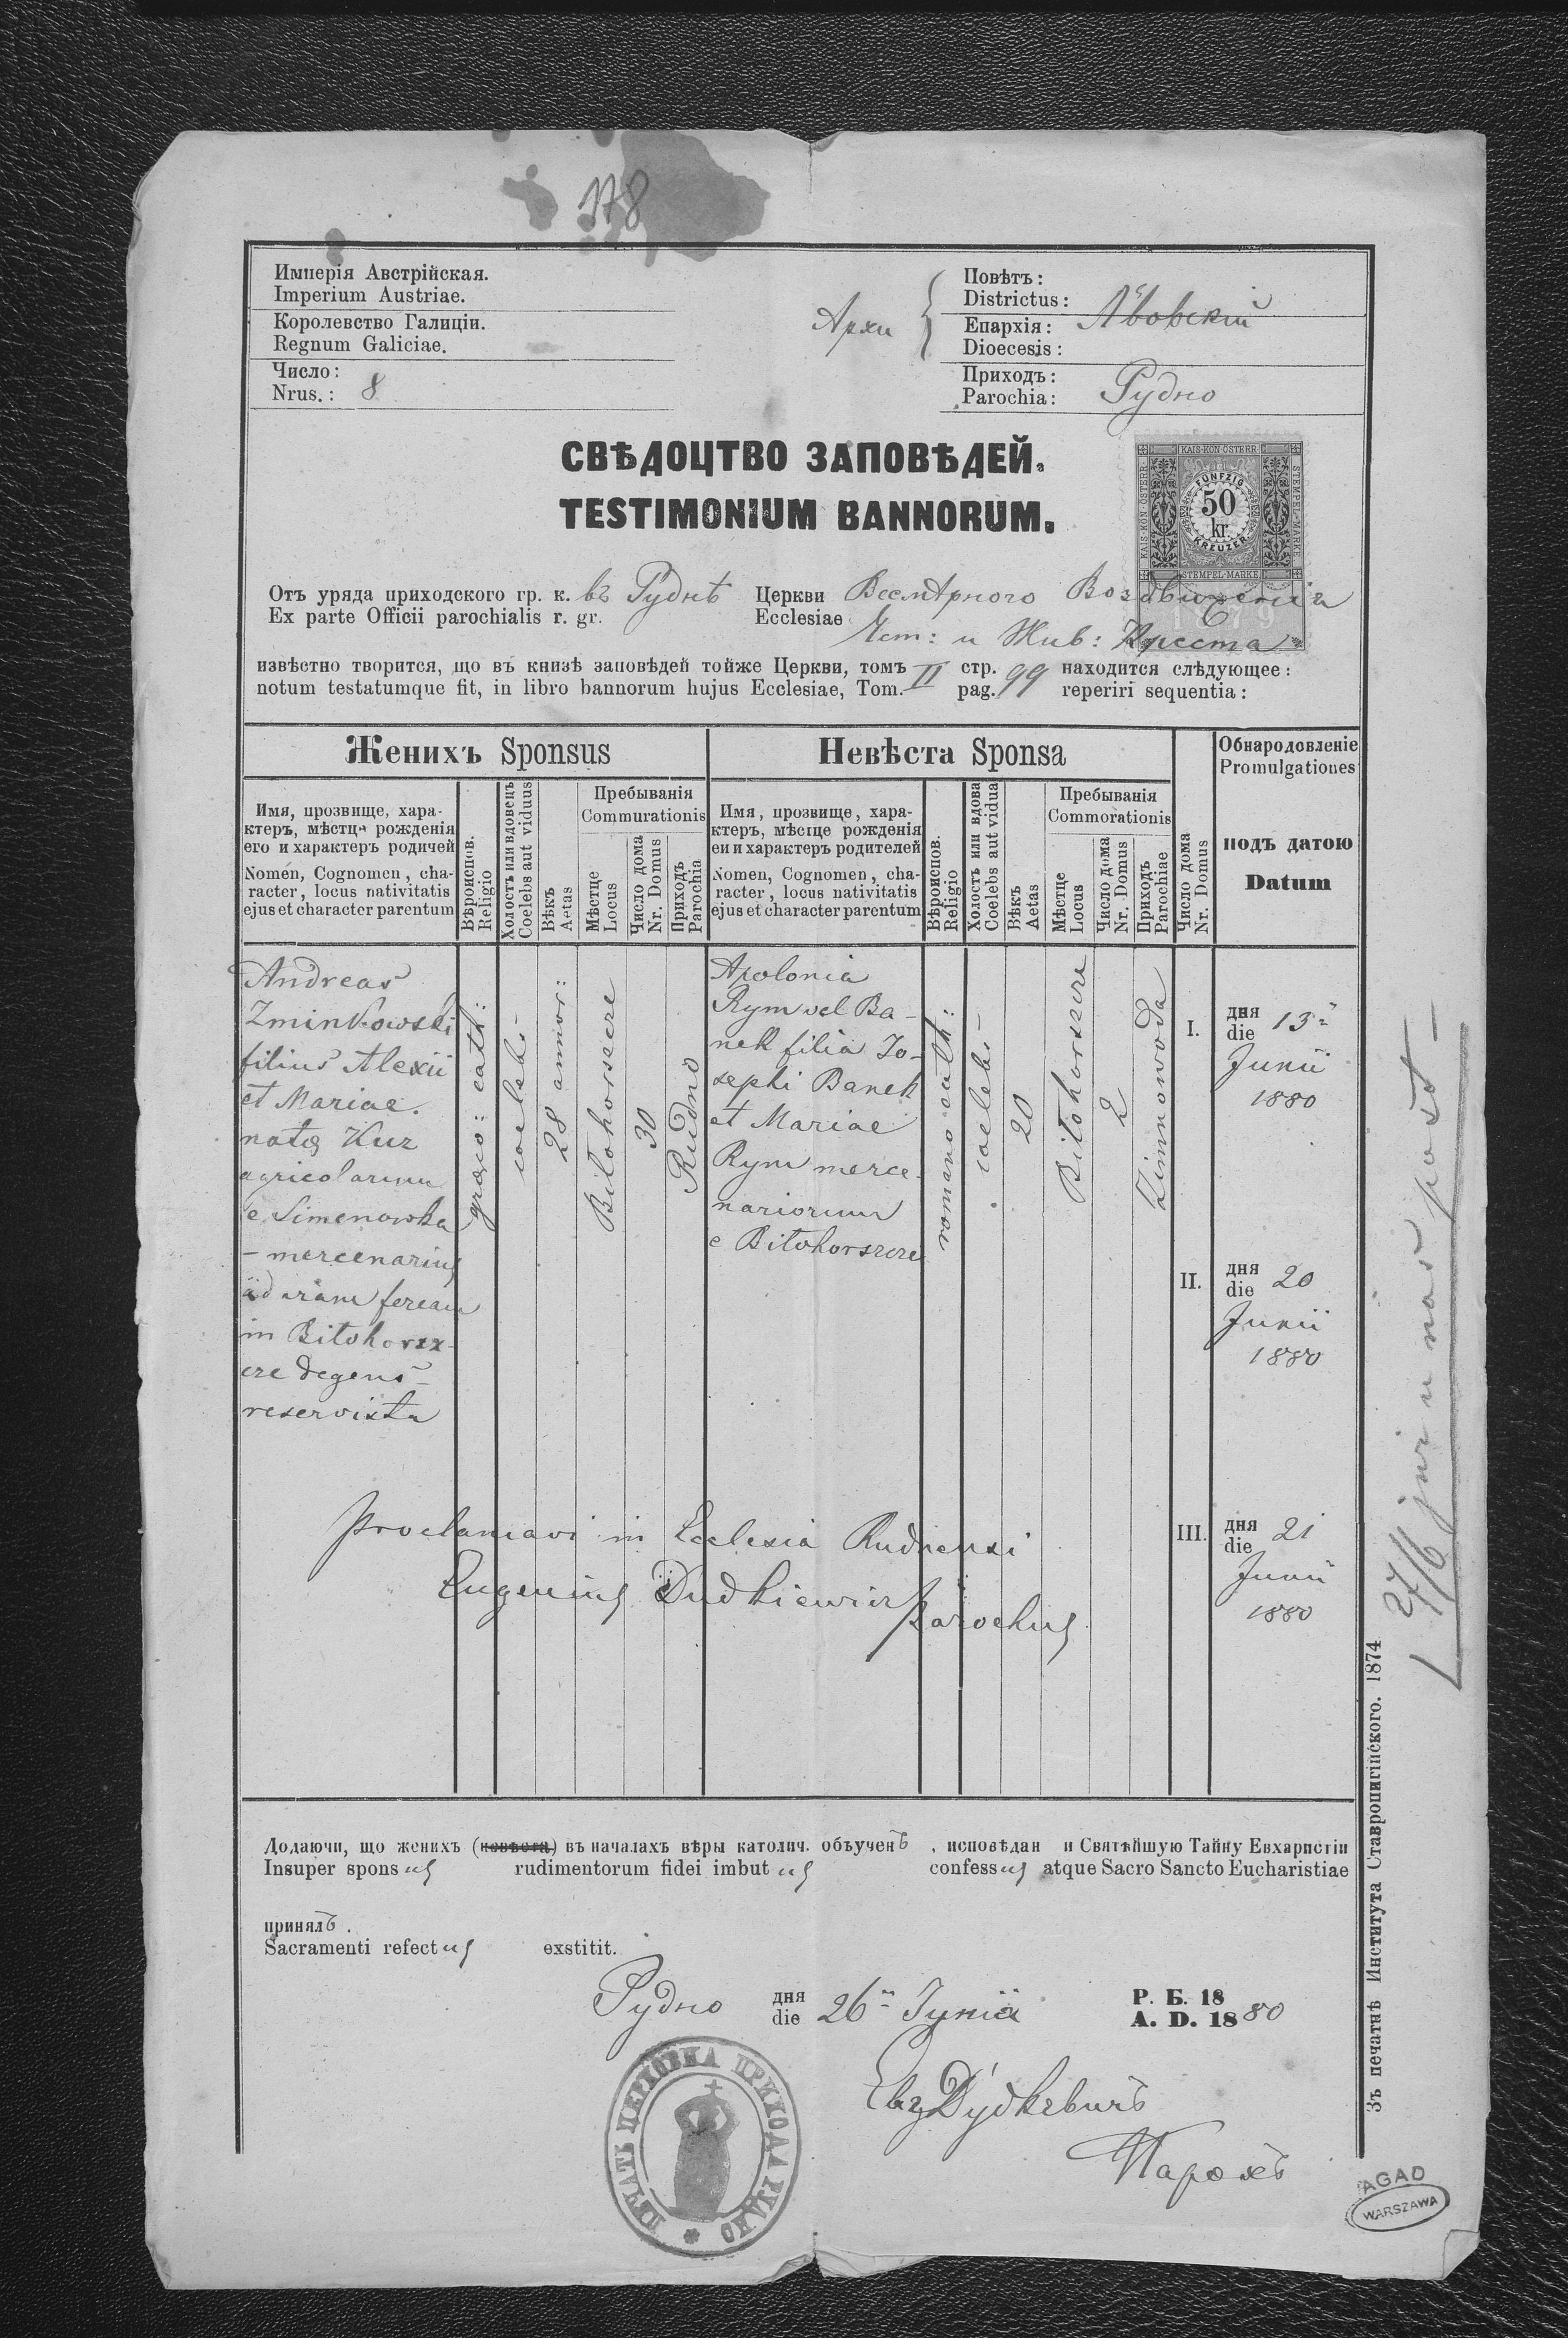 178
Имперія Австрійская.
Imperium Austriae.
Королевство Галиціи.
Regnum Galiciae.
Число:
Nrus.: 8
Архи
Повѣтъ:
Districtus:
Львовскій
Епархія:
Dioecesis:
Приходъ:
Parochia: Рудно
СВѢДОЦТВО ЗАПОВѢДЕЙ.
TESTIMONIUM BANNORUM.
KAIS·KÖN·ÖSTERR·
STEMPEL-MARKE
FÜNFZIG
50
kr.
KREUZER
STEMPEL-MARKE
KAIS·KÖN·ÖSTERR·
1879
Отъ уряда приходского гр. к. въ Руднѣ Церкви Всемірного Воздвиженія
Ex parte Officii parochialis r. gr. Ecclesiae Чест: и Жив: Креста
извѣстно творится, що въ книзѣ заповѣдей тойже Церкви, томъ II стр. 99 находится слѣдующее:
notum testatumque fit, in libro bannorum hujus Ecclesiae, Tom. pag. reperiri sequentia:
Женихъ Sponsus
Невѣста Sponsa
Обнародовленіе
Promulgationes
Имя, прозвище, хара-
ктеръ, мѣстце рожденія
его и характеръ родичей
Nomen, Cognomen, cha-
racter, locus nativitatis
ejus et character parentum
Вѣроиспов.
Religio
Холостъ или вдовецъ
Coelebs aut viduus
Вѣкъ
Aetas
Пребыванія
Commurationis
Мѣстце
Locus
Число дома
Nr. Domus
Приходъ
Parochia
Имя, прозвище, хара-
ктеръ, мѣстце рожденія
еи и характеръ родителей
Nomen, Cognomen, cha-
racter, locus nativitatis
ejus et character parentum
Вѣроиспов.
Religio
Холостъ или вдова
Coelebs aut vidua
Вѣкъ
Aetas
Пребыванія
Commorationis
Мѣстце
Locus
Число дома
Nr. Domus
Приходъ
Parochiae
Число дома
Nr. Domus
подъ датою
Datum
Andreas
Zminkowski
filius Alexii
et Mariae
natae Kuz
agricolarum
e Simenowka
– mercenarius
ad viam ferream
in Biłohorsz-
cze degens –
reservista
graeco: cath:
coelebs
28 annor:
Biłohorszcze
30
Rudno
Apolonia
Rym vel Ba-
nek filia Jo-
sephi Banek
et Mariae
Rym merce-
nariorum
e Biłohorszcze
romano cath:
coelebs
20
Biłohorszcze
2
Zimnowoda
I. дня
die 13ª
Junii
1880
II. дня
die 20
Junii
1880
III. дня
die 21
Junii
1880
Proclamavi in Ecclesia Rudnensi
Eugenius Dudkiewicz parochus
27/6 u nas
Додаючи, що женихъ (невѣста) въ началахъ вѣры католич. объученъ, исповѣдан и Святѣйшую Тайну Евхаристіи
Insuper sponsus rudimentorum fidei imbutus confessus atque Sacro Sancto Eucharistiae
принялъ.
Sacramenti refectus exstitit.
Рудно дня
die 26ª Іунія
Р. Б. 18
A. D. 1880
Евг Дудкевичъ
Парохъ
ПЕЧАТЬ ЦЕРКОВНА ПРИХОДА РУДНО
Зъ печатнѣ Института Ставропигійского. 1874
AGAD
WARSZAWA